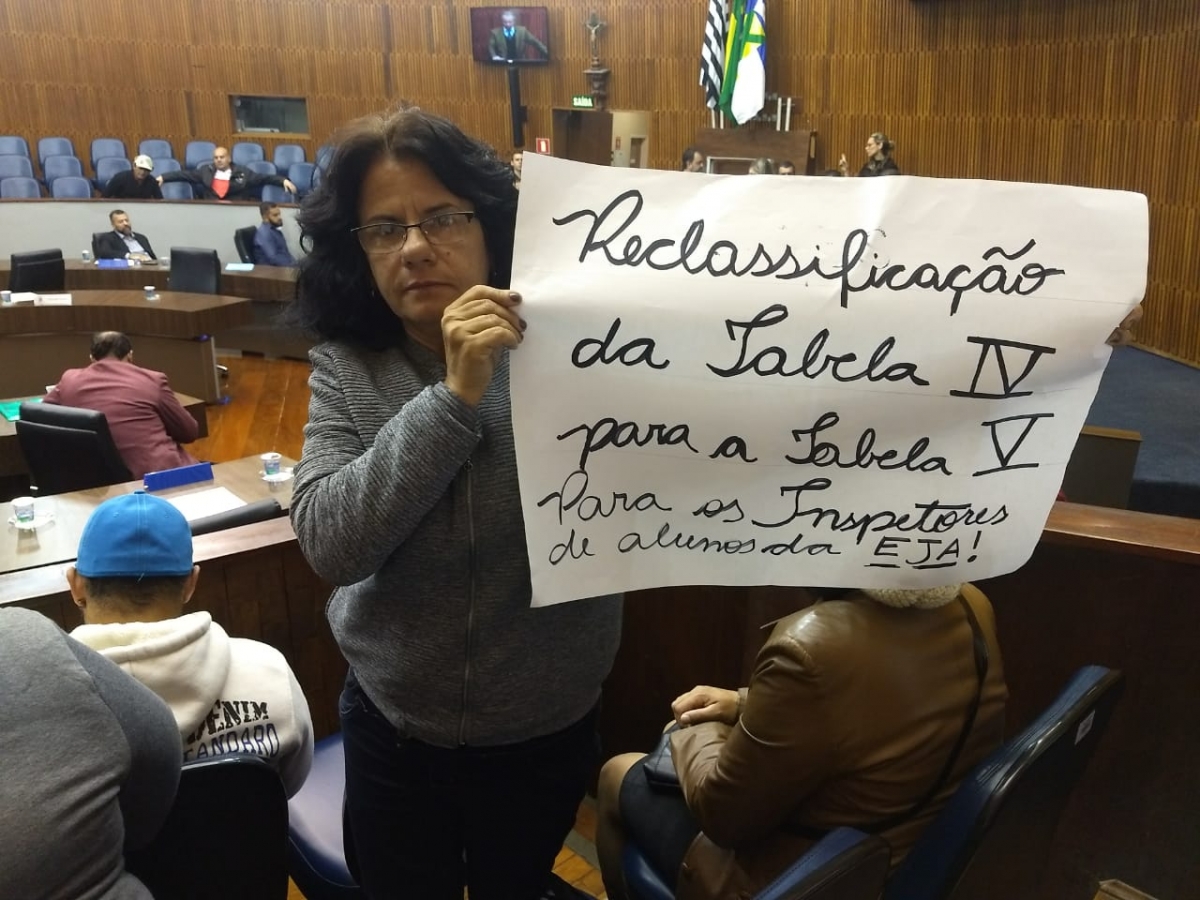 SAÍDA
Reclassificação
da Tabela IV
para a Tabela V
Para os Inspetores
de alunos da EJA!
DENIM